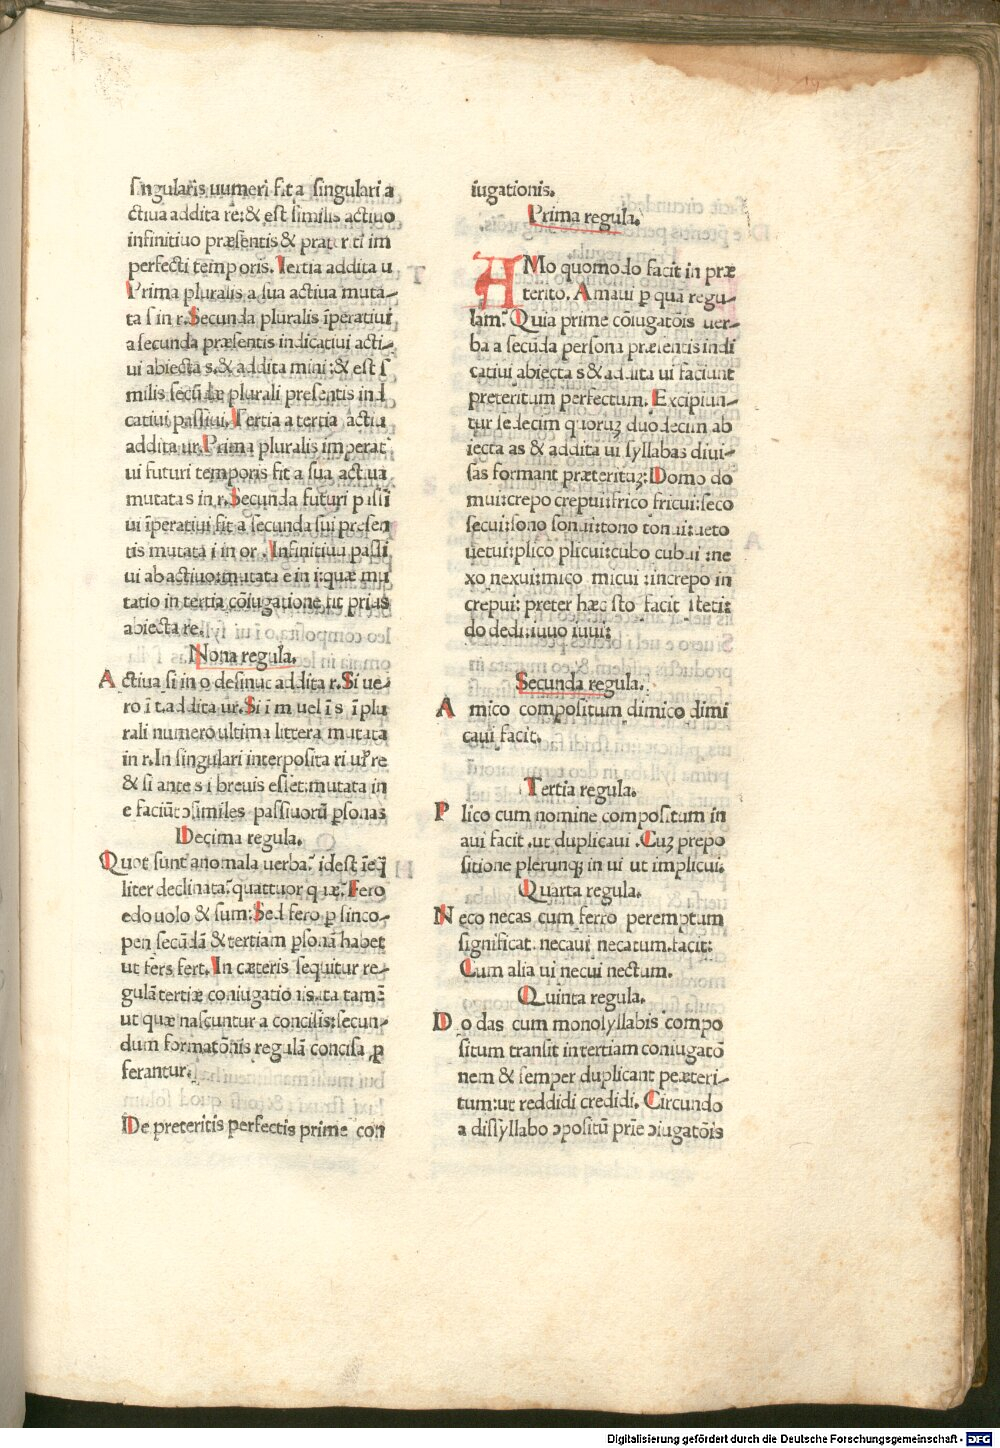 singularis uumeri fit a singulari a
ctiua addita re:& est similis actiuo
infinitiuo præsentis & præteriti im
perfecti temporis. Tertia addita u
Prima pluralis a sua actiua muta-
ta s in r. Secunda pluralis īperatiui
a secunda præsentis indicatiui acti-
ui abiecta s.& addita mini:& est si
milis secūdæ plurali presentis indi
catiui passiui. Tertia a tertia actiua
addita ur. Prima pluralis imperati
ui futuri temporis fit a sua actiua
mutata s in r. Secunda futuri passi
ui īperatiui fit a secunda sui presen
tis mutata i in or. Infinitiuu passi
ui ab actiuo:mutata e in i:quæ mu
tatio in tertia cōiugatione fit prius
abiecta re.
Nona regula.
Actiua si in o desinuc addita r. Si ue-
ro ī t.addita ur. Si ī m uel ī s ī plu
rali numero ultima littera mutata
in r. In singulari interposita ri ur̄ re
& si ante s i breuis esset:mutata in
e faciūt ɔsimiles passiuorū psonas
Decima regula.
Quot sunt anomala uerba. idest īeq
liter declinata. quattuor quæ. Fero
edo uolo & sum: Sed fero p sinco-
pen secūdā & tertiam psonā habet
ut fers fert. In cæteris sequitur re-
gulā tertiæ coniugationis.ita tamē
ut quæ nascuntur a concisis:secun-
dum formatōnis regulā concisa p
ferantur.
De preteritis perfectis prime con
iugationis.
Prima regula.
AMo quomodo facit in præ
terito. Amaui p qua regu-
lam. Quia prime cōiugatōis uer-
ba a secūda persona præsentis indi
catiui abiecta s & addita ui faciunt
preteritum perfectum. Excipiun-
tur sedecim quoruȝ duodecim ab
iecta as & addita ui syllabas diui-
sas formant præterituȝ: Domo do
mui:crepo crepui:frico fricui:seco
secui:sono sonui:tono tonui:ueto
uetui:plico plicui:cubo cubui:ne
xo nexui:mico micui:increpo in
crepui: preter hæc sto facit steti:
do dedi:iuuo iuui:
Secunda regula.
Amico compositum dimico dimi
caui facit.
Tertia regula.
Plico cum nomine compositum in
aui facit.ut duplicaui. Cuȝ prepo
sitione plerunqȝ in ui ut implicui.
Quarta regula.
Neco necas cum ferro peremptum
significat. necaui necatum.facit:
Cum alia ui necui nectum.
Quinta regula.
Do das cum monosyllabis compo
situm transit in tertiam coniugatō
nem & semper duplicant peæteri-
tum:ut reddidi credidi. Circundo
a dissyllabo ɔpositū prīe ɔiugatōis
Digitalisierung gefördert durch die Deutsche Forschungsgemeinschaft - DFG